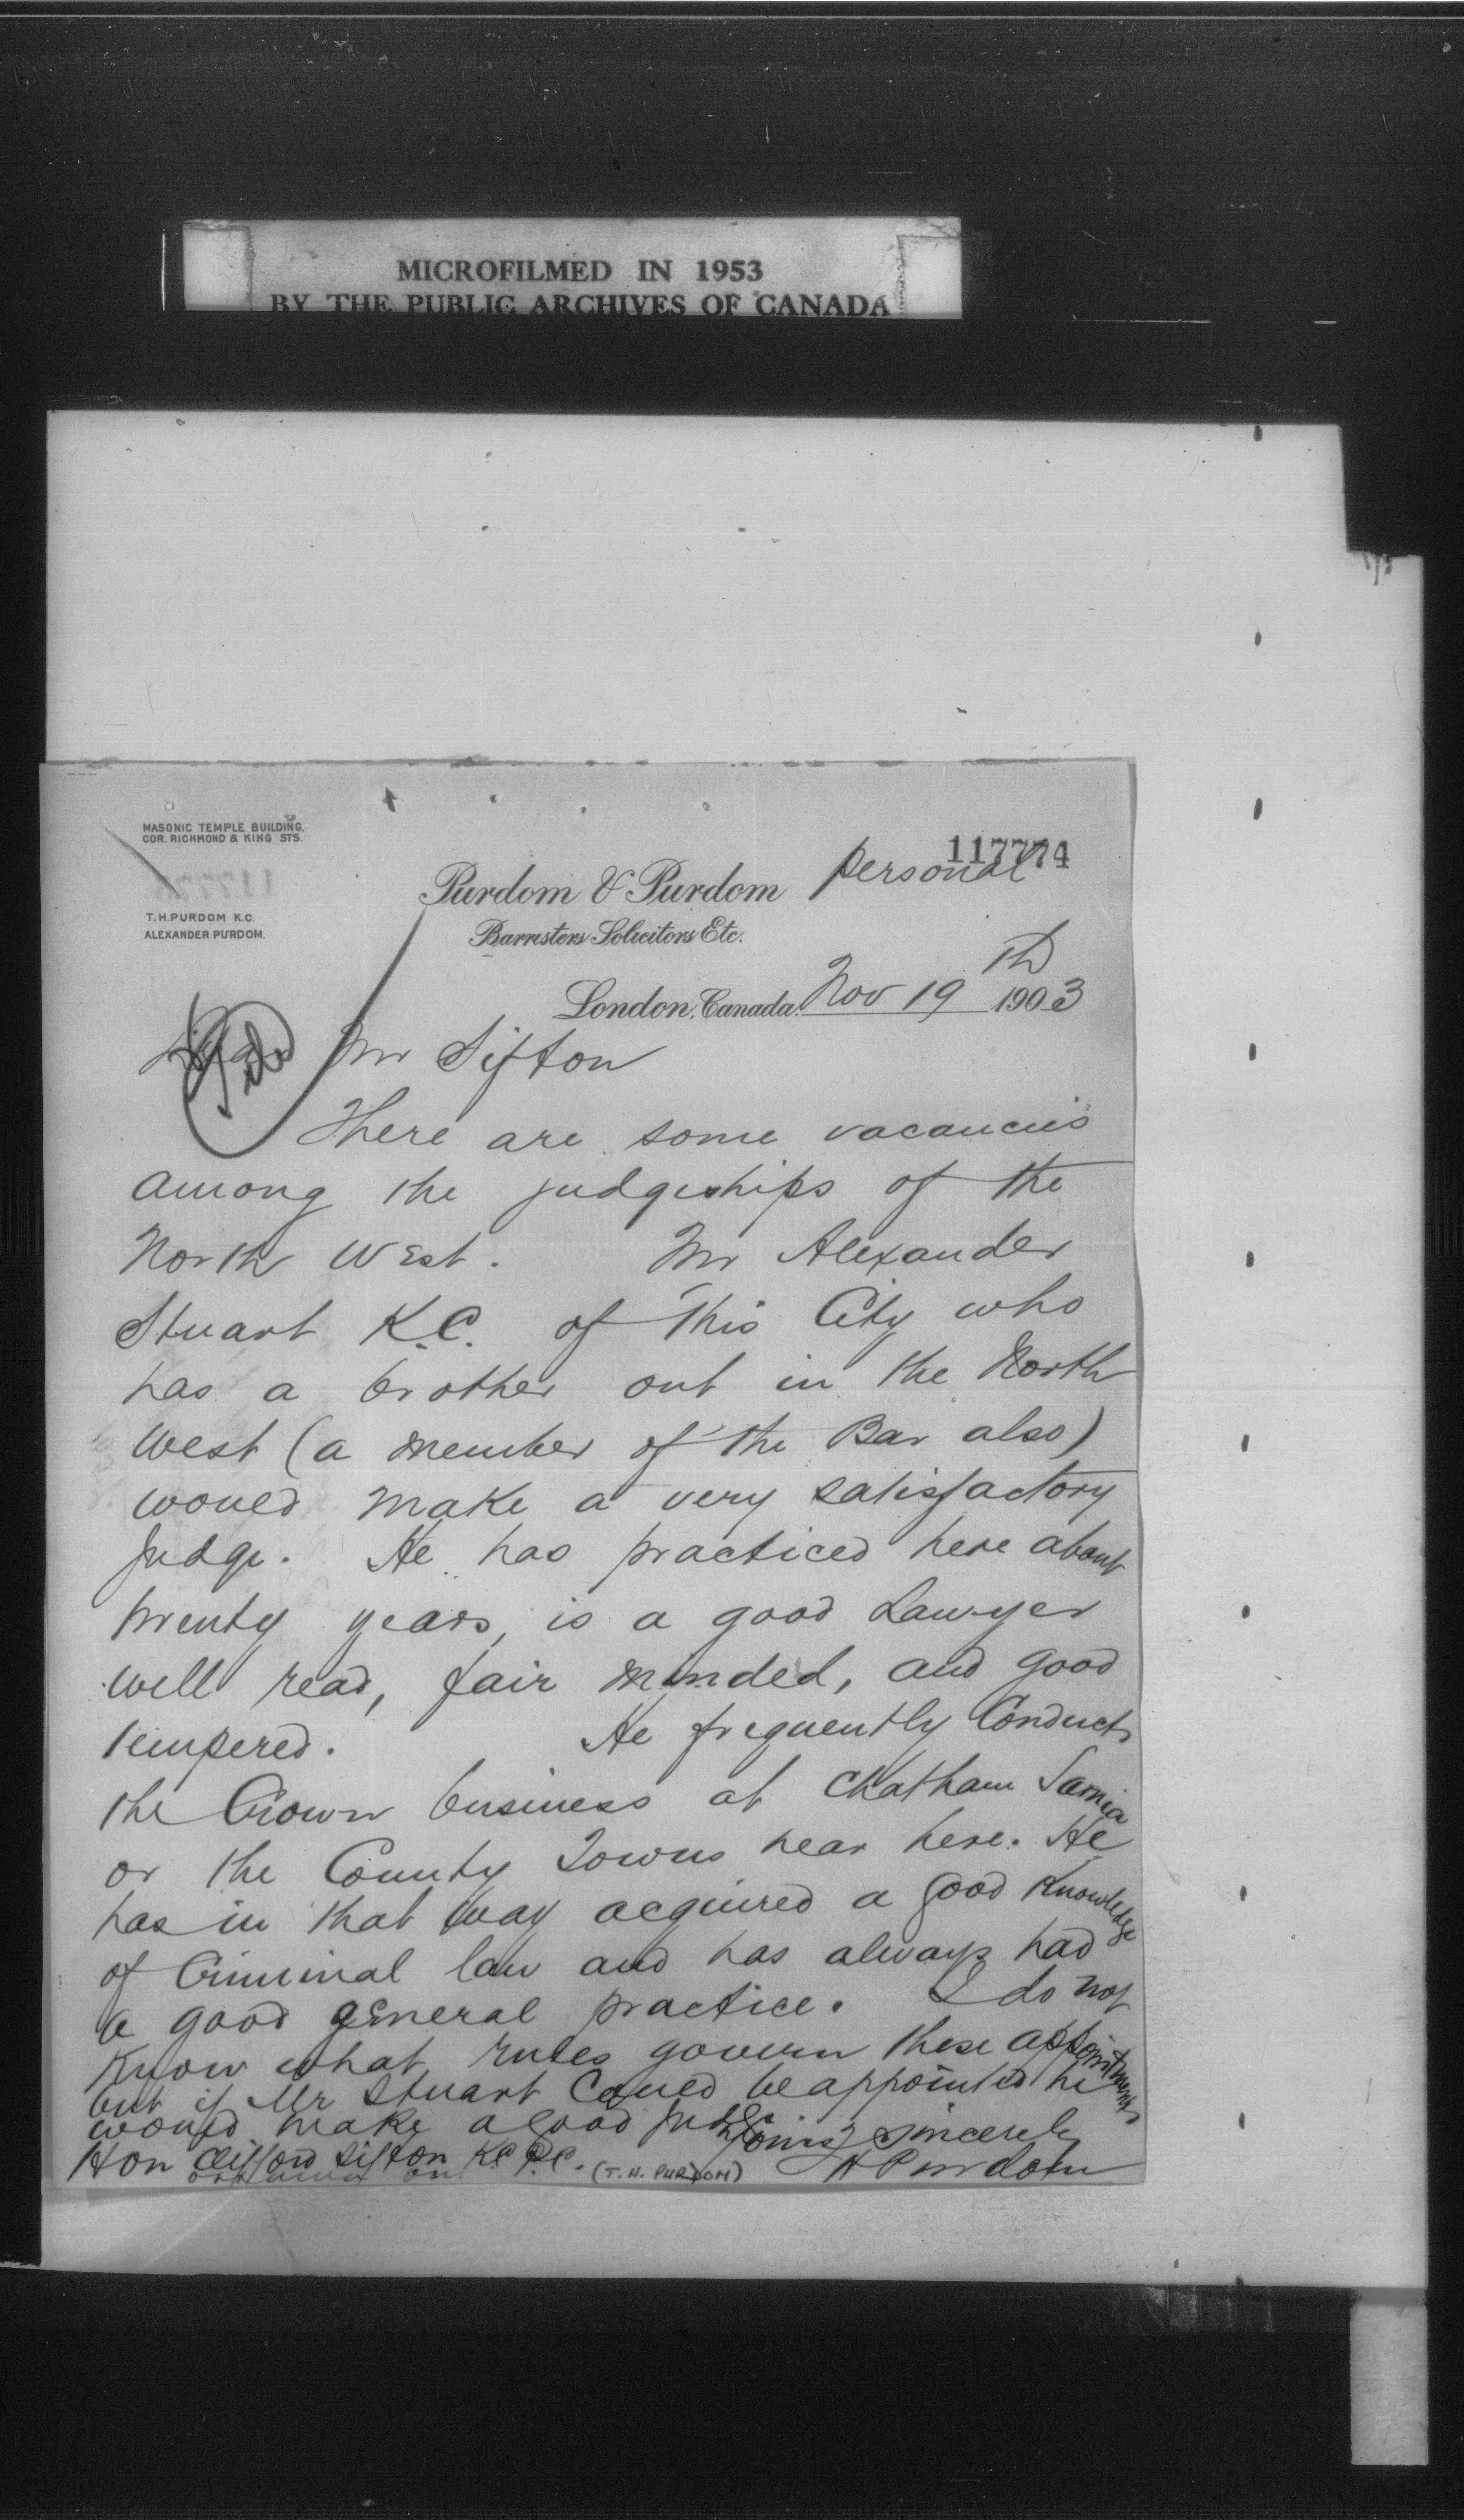 MICROFILMED IN 1953
BY THE PUBLIC ARCHIVES OF CANADA
MASONIC TEMPLE BUILDING,
COR. RICHMOND & KING STS.
117774
personal
Purdom & Purdom
T.H. PURDOM K.C.
ALEXANDER PURDOM.
Barristers Solicitors Etc.
London, Canada. Nov 19th 1903
Dear Mr Sifton
File
There are some vacancies
among the judgeships of the
North West. Mr Alexander
Stuart K.C. of this City who
has a brother out in the North
West (a member of the Bar also)
would make a very satisfactory
judge. He has practiced here about
twenty years, is a good Lawyer
well read, fair minded, and good
tempered. He frequently Conducts
the Crown business at Chatham Sarnia
or the County Towns near here. He
has in that way acquired a good Knowledge
of Criminal law and has always had
a good general practice. I do not
Know what rules govern these appointments
but if Mr Stuart Could be appointed he
would make a good judge
Yours sincerely
Hon Clifford Sifton K.C. P.C. (T.H. PURDOM) T H Purdom